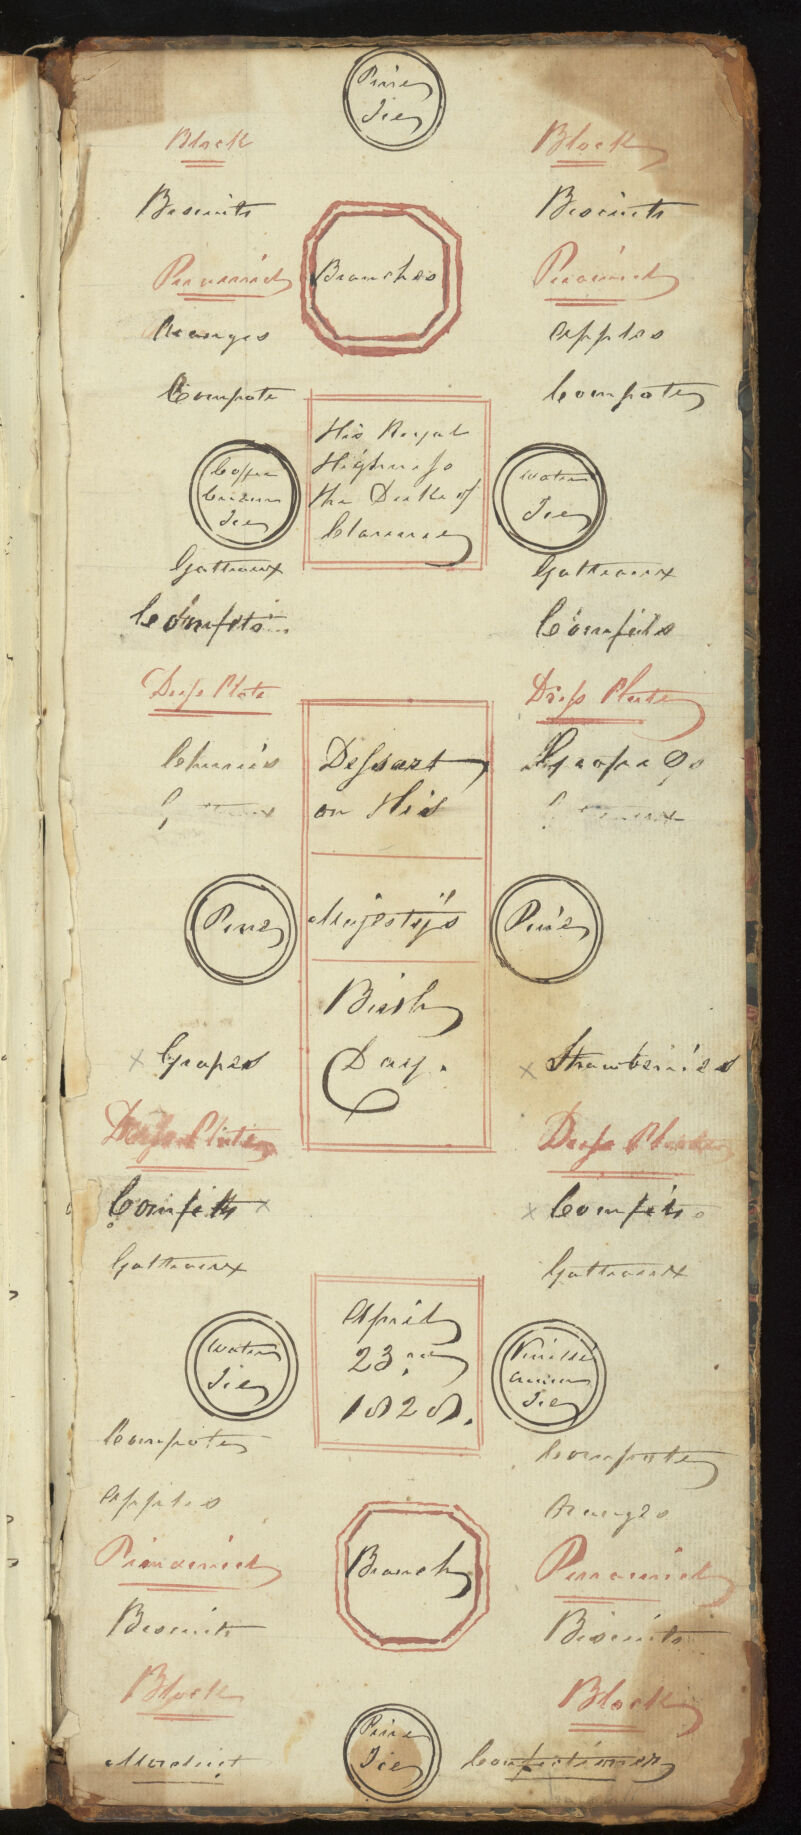 Pine
Ice
Block
Block
Biscuits
Biscuits
Branches
Piramid
Piramid
Oranges
Apples
Compote
Compote
His Royal
Highness
the Duke of
Clarence
Coffee
Cream
Ice
Water
Ice
Gatteaux
Gatteaux
Comfits
Comfits
Dress Plate
Dress Plate
Cherries
Grapes
Gatteaux
Gatteaux
Dessart
on His
Majesty's
Birth
Day.
Pine
Pine
x Grapes
x Strawberries
Dress Plate
Dress Plate
Comfits x
x Comfits
Gatteaux
Gatteaux
April
23rd
1828.
Water
Ice
Ice
Compote
Compote
Apples
Oranges
Piramid
Branch
Piramid
Biscuits
Biscuits
Block
Block
Pine
Ice
Confectioner